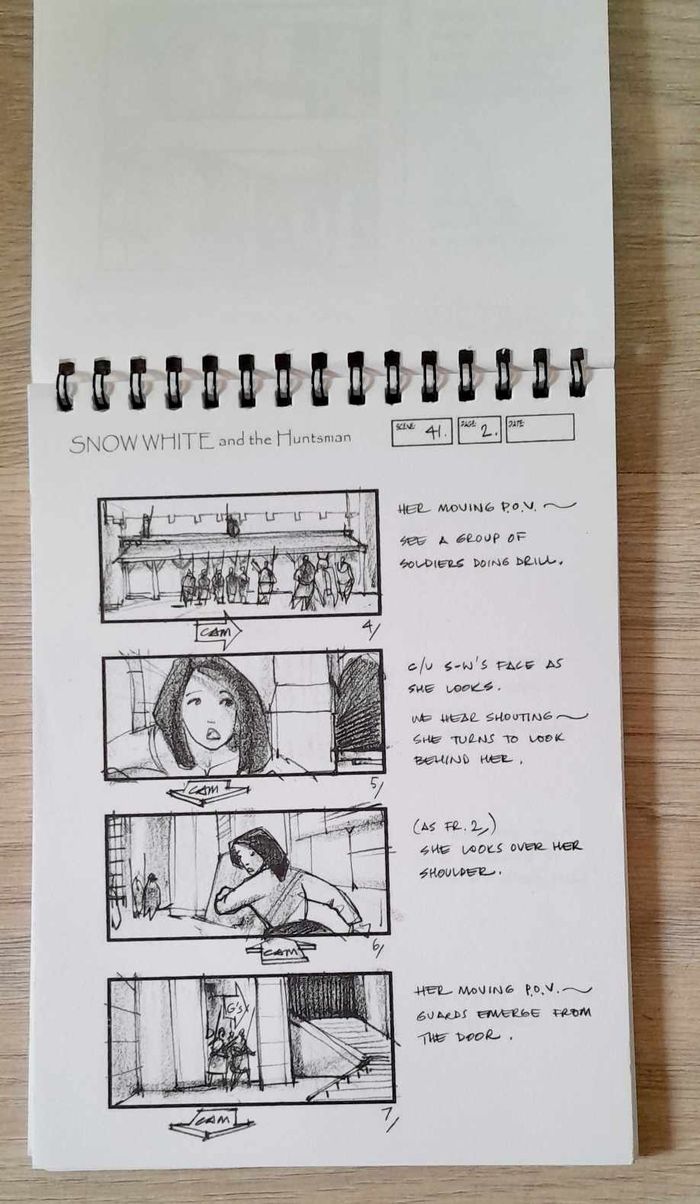 SNOW WHITE and the Huntsman
SCENE: 41.
PAGE: 2.
DATE:
HER MOVING P.O.V. ~
SEE A GROUP OF
SOLDIERS DOING DRILL.
CAM
4/
C/U S-W'S FACE AS
SHE LOOKS.
WE HEAR SHOUTING ~
SHE TURNS TO LOOK
BEHIND HER.
CAM
5/
(AS FR. 2,)
SHE LOOKS OVER HER
SHOULDER.
CAM
6/
G'S
HER MOVING P.O.V. ~
GUARDS EMERGE FROM
THE DOOR.
CAM
7/